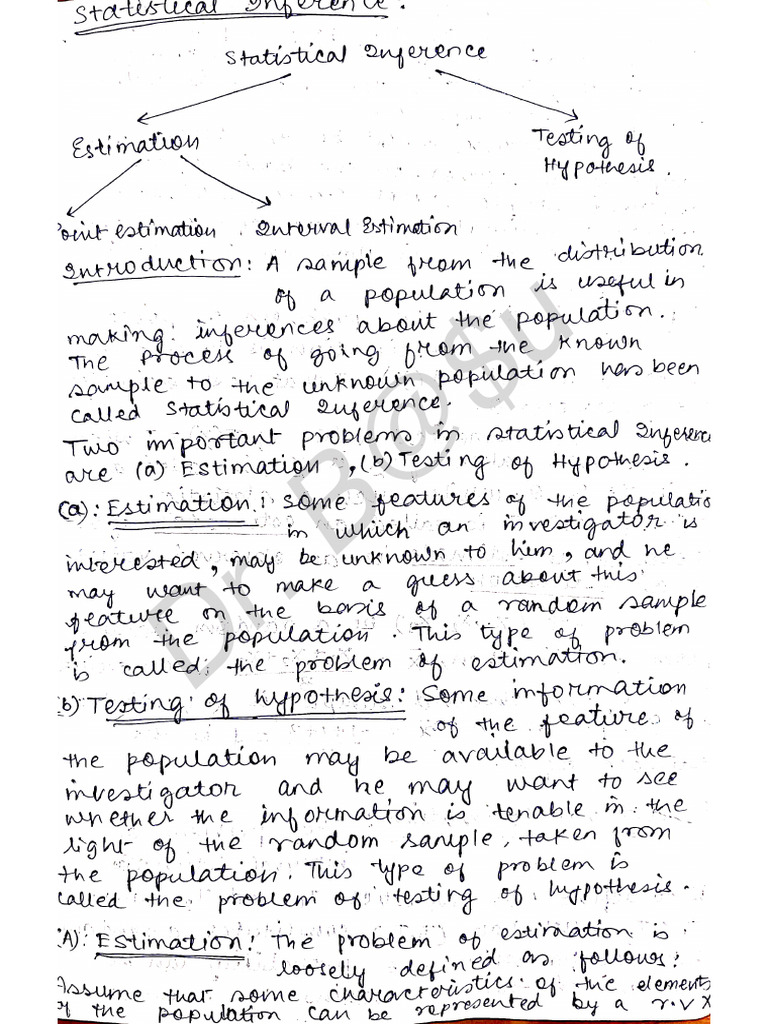 Statistical Inference.
Statistical Inference
Estimation
Testing of
Hypothesis.
oint estimation Interval Estimation
Introduction: A sample from the distribution
of a population is useful in
making inferences about the population.
The process of going from the known
sample to the unknown population has been
called Statistical Inference.
Two important problems in statistical Inferenc
are (a) Estimation, (b) Testing of Hypothesis.
(a): Estimation: some features of the populatio
in which an investigator is
interested, may be unknown to him, and he
may want to make a guess about this
feature on the basis of a random sample
from the population. This type of problem
is called the problem of estimation.
b) Testing of hypothesis: Some information
of the feature of
the population may be available to the
investigator and he may want to see
whether the information is tenable in the
light of the random sample, taken from
the population. This type of problem is
called the problem of testing of hypothesis.
A): Estimation: The problem of estimation is
loosely defined as follows:
Assume that some characteristics of the elements
f the population can be represented by a r.v X
Dr. B@$u